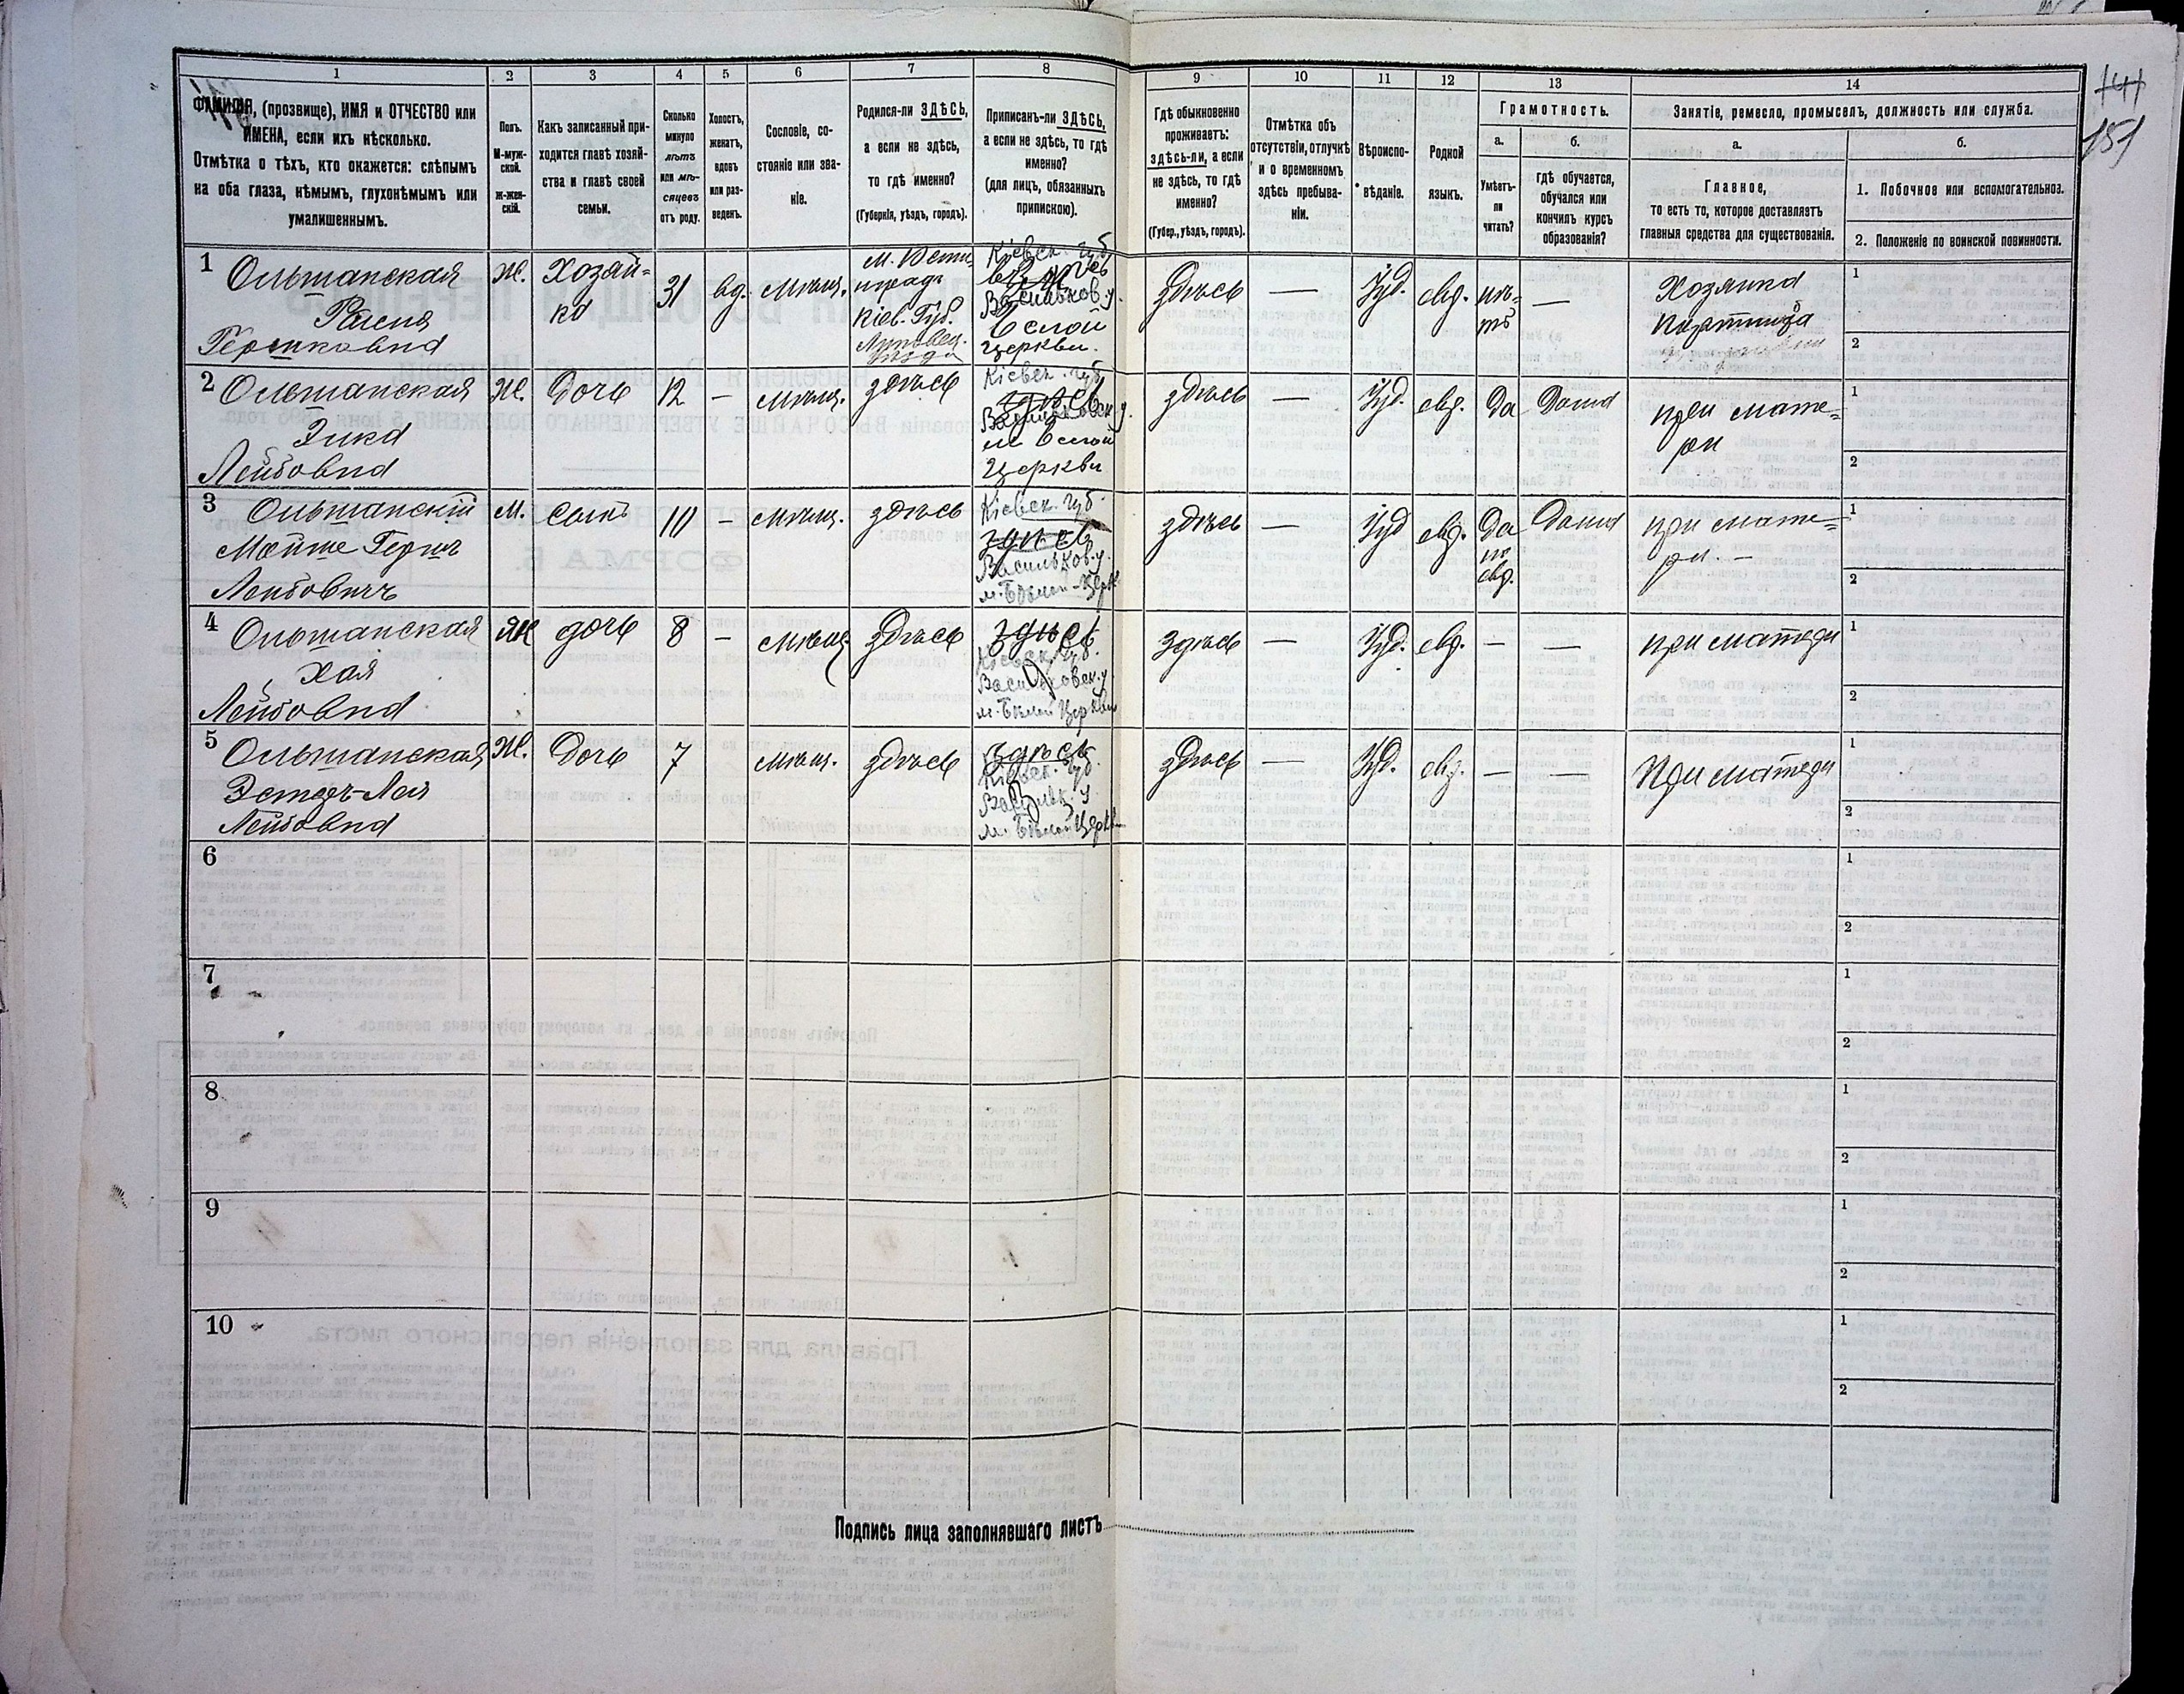 141
151
1 2 3 4 5 6 7 8 9 10 11 12 13 14
ФАМИЛІЯ, (прозвище), ИМЯ и ОТЧЕСТВО или
ИМЕНА, если ихъ нѣсколько.
Отмѣтка о тѣхъ, кто окажется: слѣпымъ
на оба глаза, нѣмымъ, глухонѣмымъ или
умалишеннымъ.
Полъ.
М-муж-
ской.
ж-жен-
скій.
Какъ записанный при-
ходится главѣ хозяй-
ства и главѣ своей
семьи.
Сколько
минуло
лѣтъ
или мѣ-
сяцевъ
отъ роду.
Холостъ,
женатъ,
вдовъ
или раз-
веденъ.
Сословіе, со-
стояніе или зва-
ніе.
Родился-ли ЗДѢСЬ,
а если не здѣсь,
то гдѣ именно?
(Губернія, уѣздъ, городъ).
Приписанъ-ли ЗДѢСЬ,
а если не здѣсь, то гдѣ
именно?
(для лицъ, обязанныхъ
припискою).
Гдѣ обыкновенно
проживаетъ:
здѣсь-ли, а если
не здѣсь, то гдѣ
именно?
(Губер., уѣздъ, городъ).
Отмѣтка объ
отсутствіи, отлучкѣ
и о временномъ
здѣсь пребыва-
ніи.
Вѣроиспо-
вѣданіе.
Родной
языкъ.
Грамотность.
а.
Умѣетъ-
ли
читать?
б.
гдѣ обучается,
обучался или
кончилъ курсъ
образованія?
Занятіе, ремесло, промыселъ, должность или служба.
а.
Главное,
то есть то, которое доставляетъ
главныя средства для существованія.
б.
1. Побочное или вспомогательное.
2. Положеніе по воинской повинности.
1
Ольшанская
Рася
Гершковна
Ж.
Хозяй-
ка
31
вд.
мѣщ.
Кіев. Губ.
Липовец.
уѣзда
Кіевск. губ.
здѣсь
Васильков. у.
Белой
Церкви.
здѣсь
—
Іуд.
евр.
нѣ-
тъ
—
Хозяйка
портниха
1
2
2
Ольшанская
Эика
Лейбовна
Ж.
Дочь
12
—
мѣщ.
здѣсь
Кіевск. губ.
здѣсь
Васильковск. у.
м Белой
Церкви
здѣсь
—
Іуд.
евр.
Да
Дома
при мате-
ри
1
2
3
Ольшанскій
Мойше Герш
Лейбовичъ
М.
Сынъ
10
—
мѣщ.
здѣсь
Кіевск. губ.
здѣсь
Васильков. у.
м. Бѣлой Церк
здѣсь
—
Іуд
евр.
Да
по
евр.
Дома
при мате-
ри. —
1
2
4
Ольшанская
Хая
Лейбовна
Ж
дочь
8
—
мѣщ.
здѣсь
здѣсь.
Кіевск. Губ.
Васильковск. у
м. Бѣлой Церкви
здѣсь
—
Іуд.
евр.
—
—
при матери
1
2
5
Ольшанская
Эстеръ-Лея
Лейбовна
Ж.
Дочь
7
мѣщ.
здѣсь
здѣсь
Кіевск. Губ.
Васильк. у
м. Бѣлой Церкви
здѣсь
—
Іуд.
евр.
—
—
при матери
1
2
6
1
2
7
1
2
8
1
2
9
1
2
10
1
2
Подпись лица заполнявшаго листъ